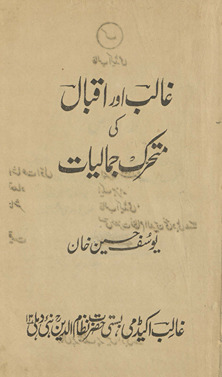 غالب اور اقبال
کی
متحرک جمالیات
یوسف حسین خان
غالب اکیڈمی بستی حضرت نظام الدین نئی دہلی ۱۳